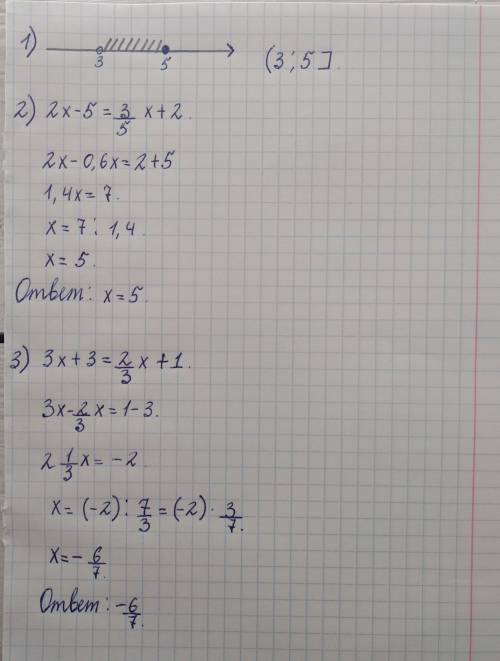 1) 3 5 (3; 5].
2) 2x-5 = 3/5 x+2.
2x-0,6x=2+5
1,4x=7.
x=7:1,4.
x=5.
Ответ: x=5.
3) 3x+3=2/3 x+1.
3x-2/3 x=1-3.
2 1/3 x=-2.
x=(-2):7/3=(-2)·3/7.
x=-6/7.
Ответ: -6/7.